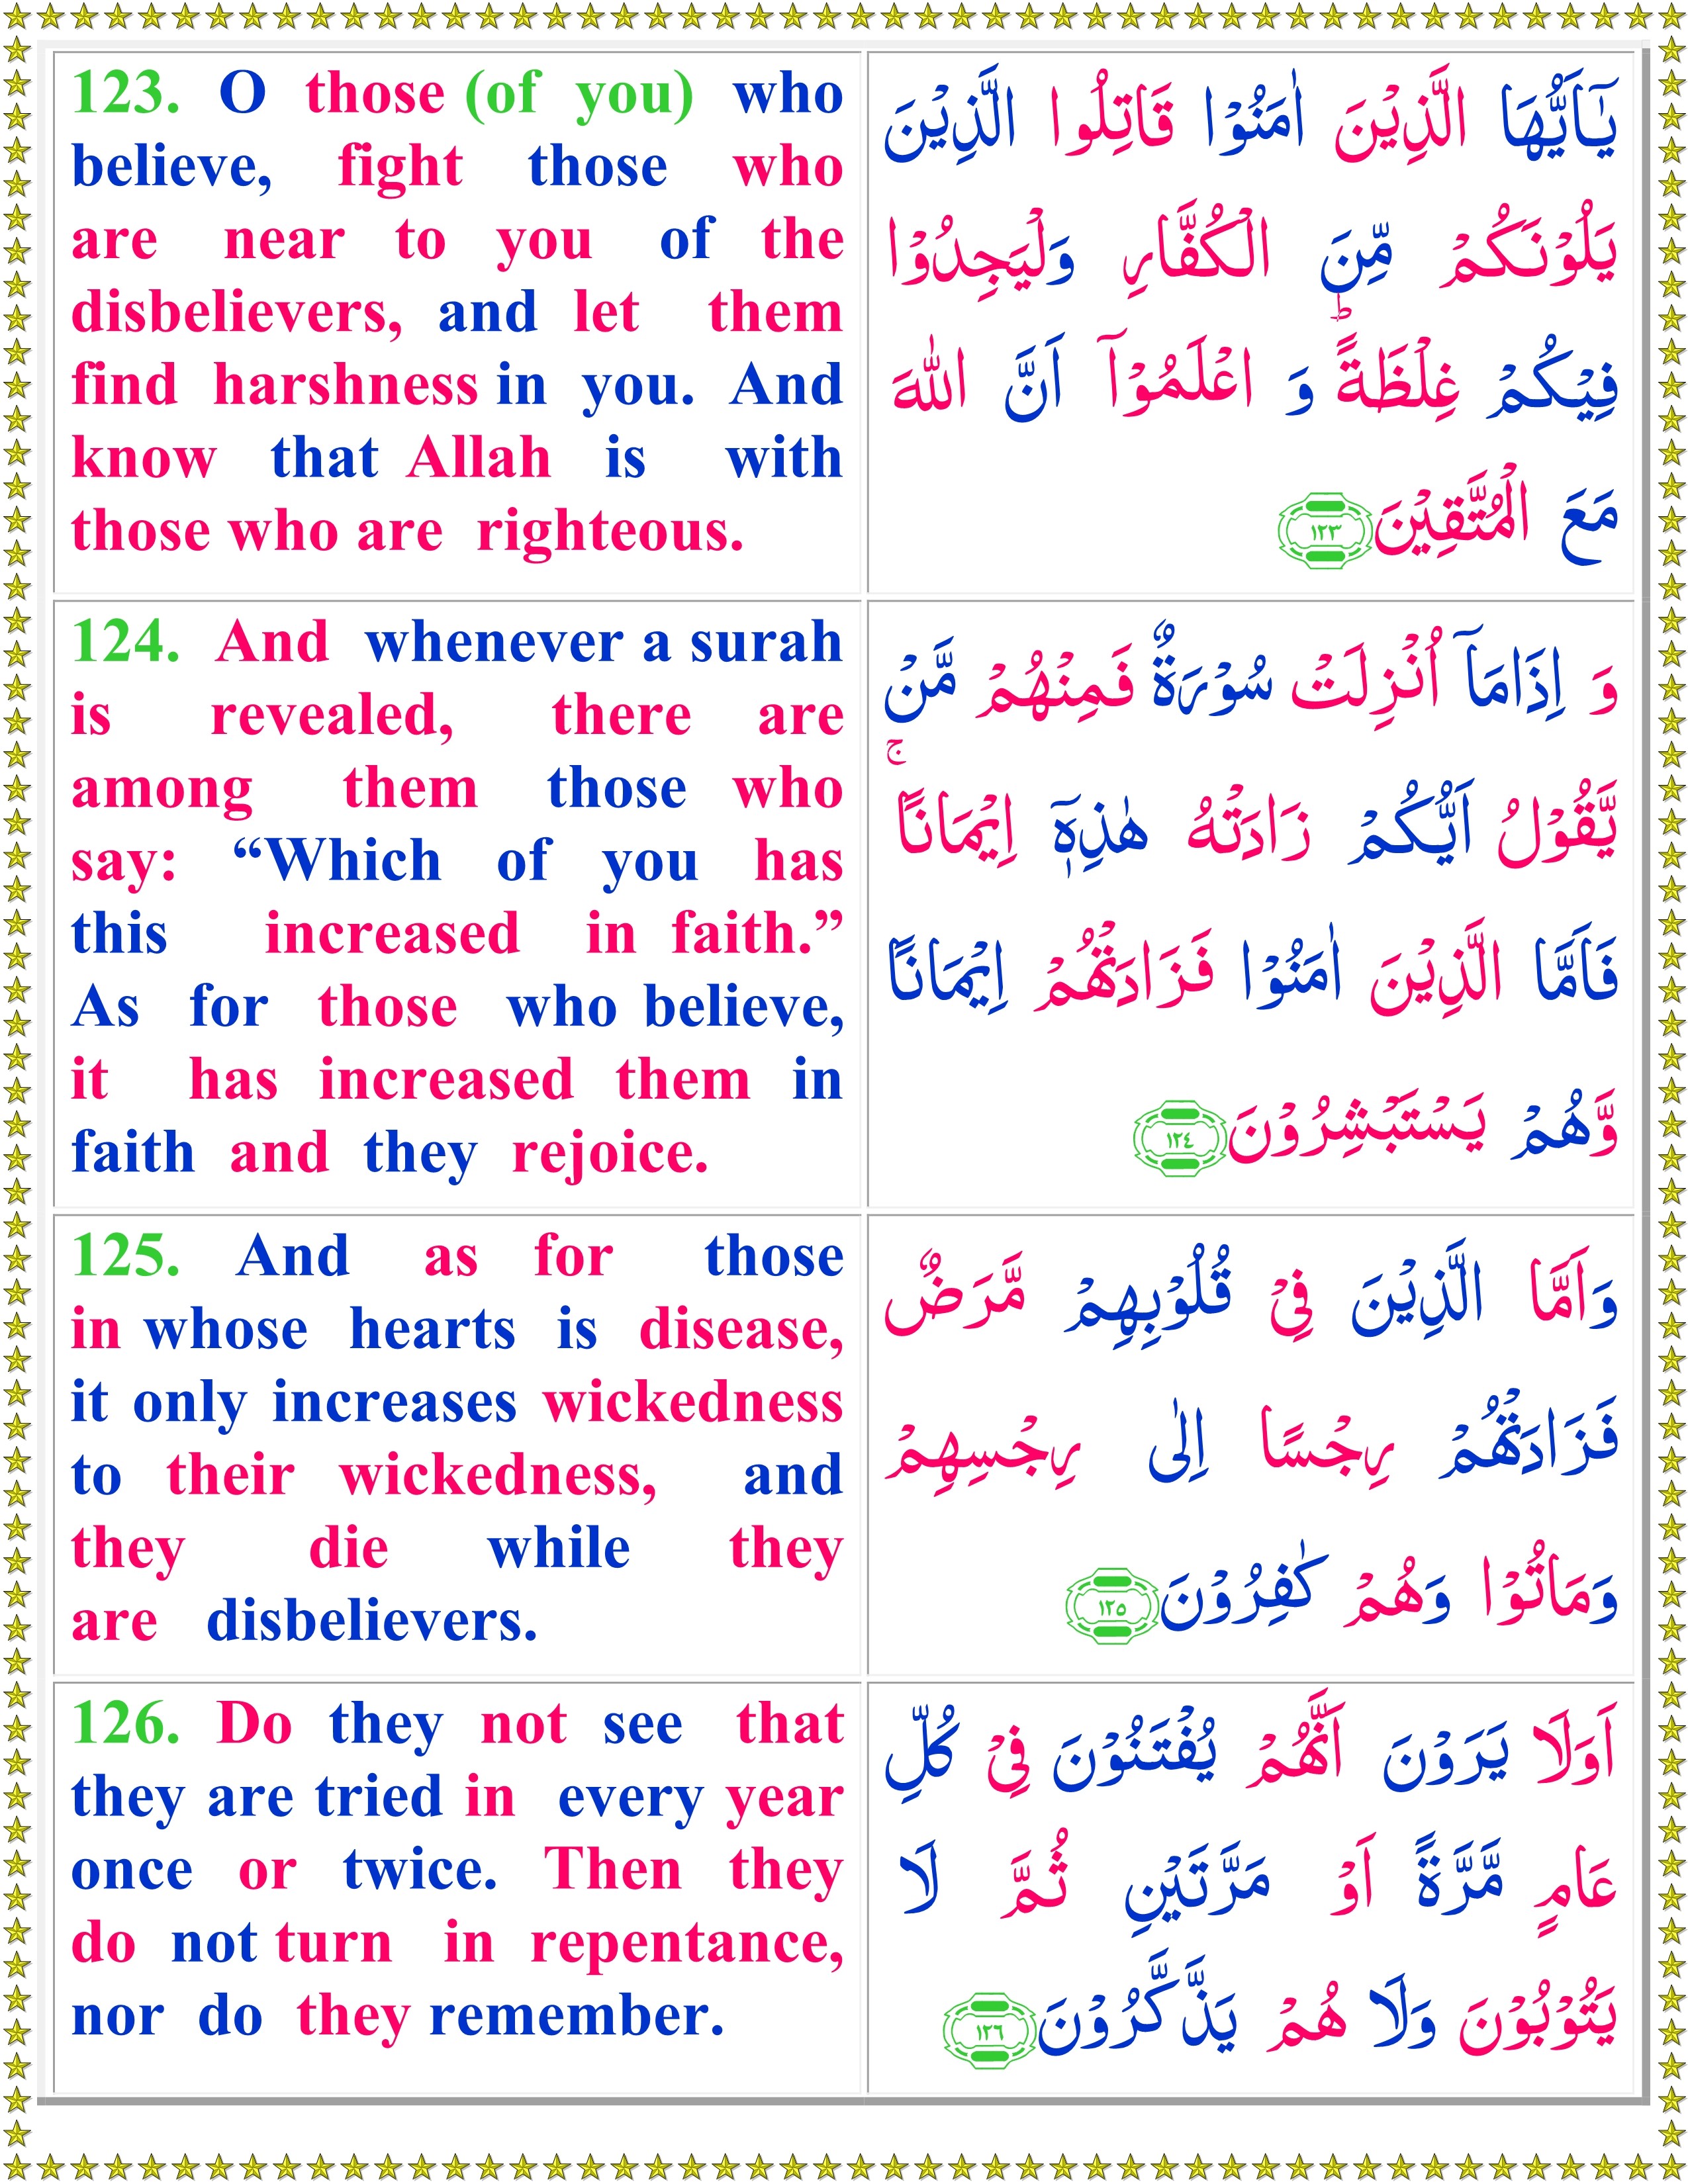 123. O those (of you) who
believe, fight those who
are near to you of the
disbelievers, and let them
find harshness in you. And
know that Allah is with
those who are righteous.
يٰۤاَيُّهَا الَّذِيْنَ اٰمَنُوْا قَاتِلُوا الَّذِيْنَ
يَلُوْنَكُمْ مِّنَ الْكُفَّارِ وَلْيَجِدُوْا
فِيْكُمْ غِلْظَةً ؕ وَ اعْلَمُوْۤا اَنَّ اللّٰهَ
مَعَ الْمُتَّقِيْنَ ١٢٣
124. And whenever a surah
is revealed, there are
among them those who
say: “Which of you has
this increased in faith.”
As for those who believe,
it has increased them in
faith and they rejoice.
وَ اِذَا مَاۤ اُنْزِلَتْ سُوْرَةٌ فَمِنْهُمْ مَّنْ
يَّقُوْلُ اَيُّكُمْ زَادَتْهُ هٰذِهٖۤ اِيْمَانًا ۚ
فَاَمَّا الَّذِيْنَ اٰمَنُوْا فَزَادَتْهُمْ اِيْمَانًا
وَّهُمْ يَسْتَبْشِرُوْنَ ١٢٤
125. And as for those
in whose hearts is disease,
it only increases wickedness
to their wickedness, and
they die while they
are disbelievers.
وَاَمَّا الَّذِيْنَ فِيْ قُلُوْبِهِمْ مَّرَضٌ
فَزَادَتْهُمْ رِجْسًا اِلٰى رِجْسِهِمْ
وَمَاتُوْا وَهُمْ كٰفِرُوْنَ ١٢٥
126. Do they not see that
they are tried in every year
once or twice. Then they
do not turn in repentance,
nor do they remember.
اَوَلَا يَرَوْنَ اَنَّهُمْ يُفْتَنُوْنَ فِيْ كُلِّ
عَامٍ مَّرَّةً اَوْ مَرَّتَيْنِ ثُمَّ لَا
يَتُوْبُوْنَ وَلَا هُمْ يَذَّكَّرُوْنَ ١٢٦